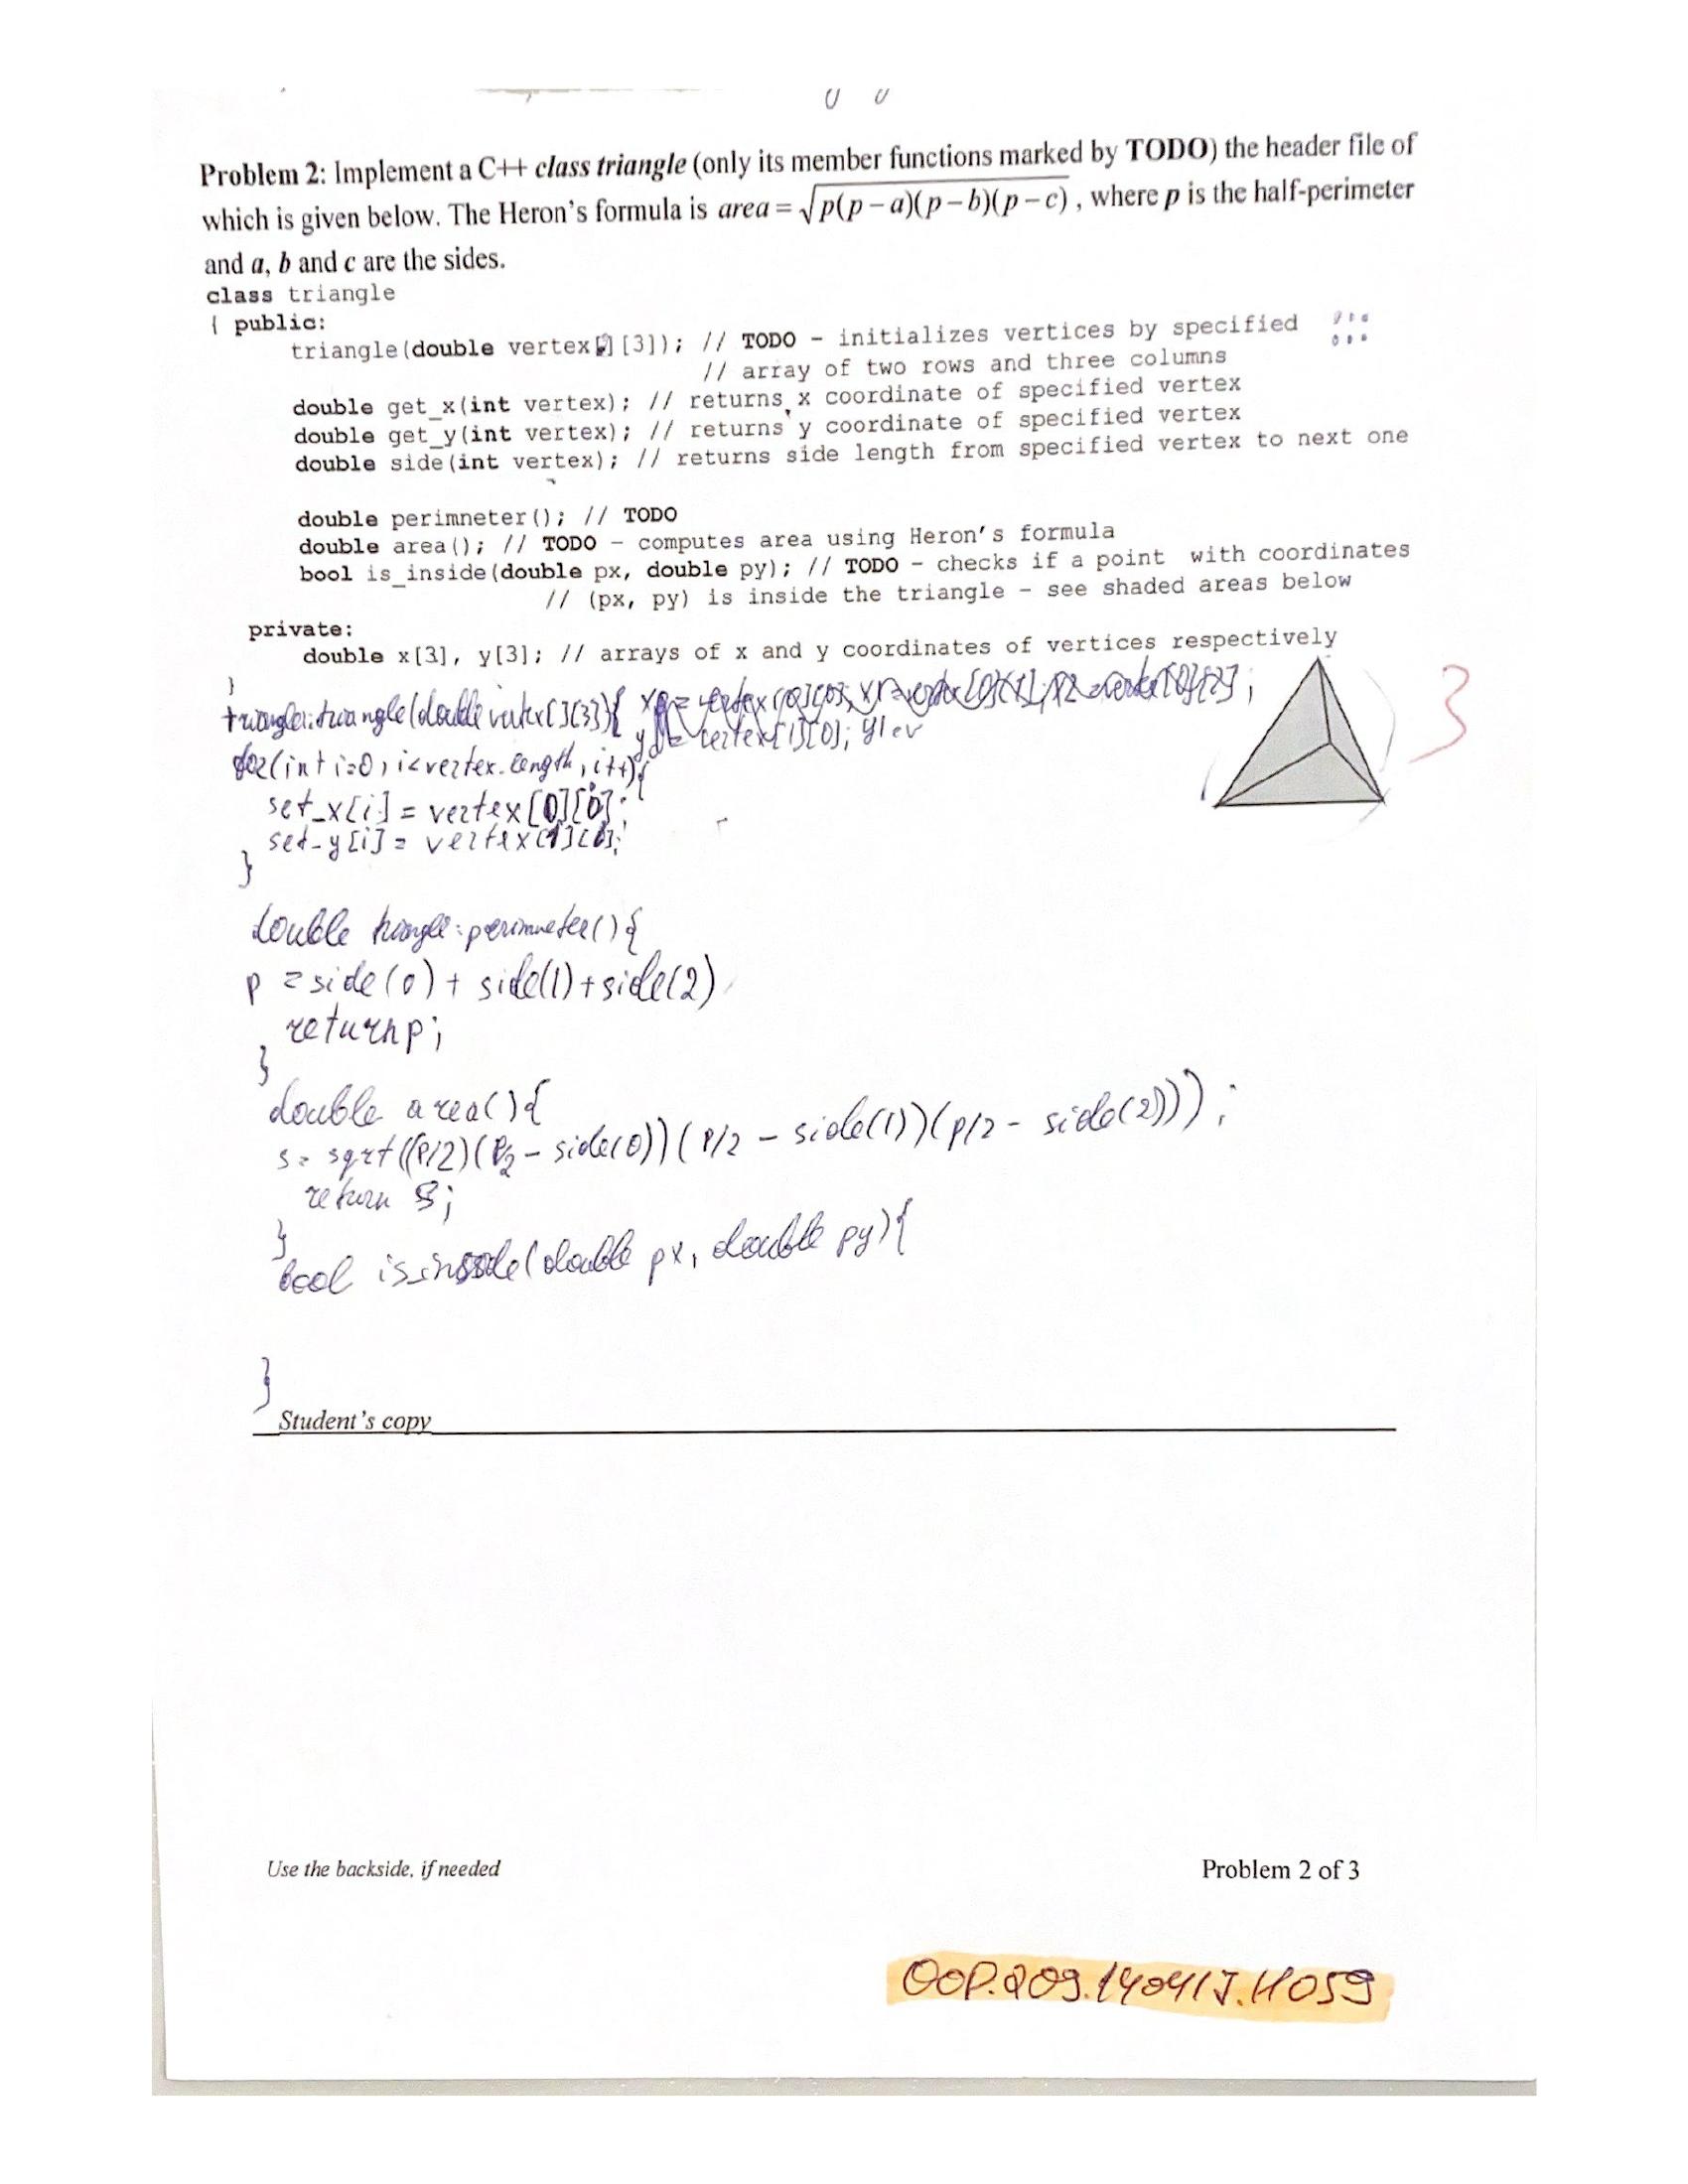 Problem 2: Implement a C++ class triangle (only its member functions marked by TODO) the header file of
which is given below. The Heron's formula is area = √p(p − a)(p − b)(p − c) , where p is the half-perimeter
and a, b and c are the sides.
class triangle
{ public:
triangle(double vertex[2][3]); // TODO - initializes vertices by specified
// array of two rows and three columns
double get_x(int vertex); // returns x coordinate of specified vertex
double get_y(int vertex); // returns y coordinate of specified vertex
double side(int vertex); // returns side length from specified vertex to next one
double perimneter(); // TODO
double area(); // TODO - computes area using Heron's formula
bool is_inside(double px, double py); // TODO - checks if a point with coordinates
// (px, py) is inside the triangle - see shaded areas below
private:
double x[3], y[3]; // arrays of x and y coordinates of vertices respectively
}
triangle::triangle(double vertex[][3]){
3
for(int i=0, i<vertex.length, i++){
set_x[i] = vertex[0][0];
set_y[i] = vertex[1][0];
}
double triangle:perimneter(){
p = side(0) + side(1) + side(2)
return p;
}
double area(){
s = sqrt((P/2)(P/2 - side(0))(P/2 - side(1))(p/2 - side(2)));
return S;
}
bool is_inside(double px, double py){
}
Student's copy
Use the backside, if needed
Problem 2 of 3